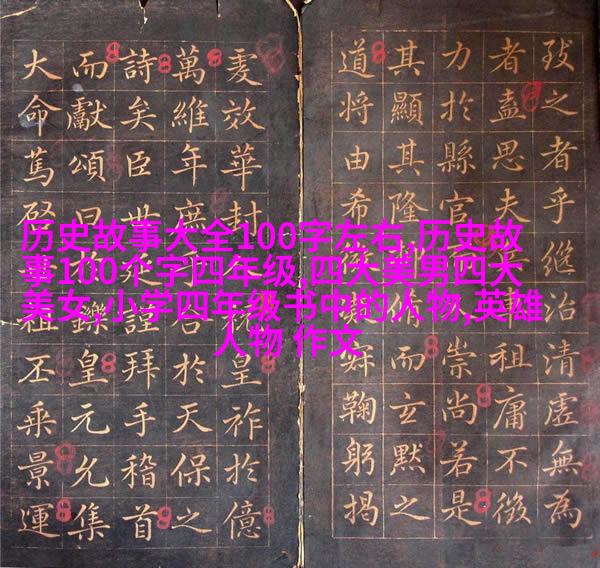 历史故事大全100字左右,历史故
事100个字四年级,四大美男四大
美女,小学四年级书中的人物,英雄
人物 作文
之者乎治清虛無為
者盍思夫租庸不徵
力於縣官崇尚若是
其顯其隆而玄默之
道將由希舜鞠躬揭
效華封祝皇祚於億
萬維年於天保之
詩矣臣世謹拜手稽首
而獻頌曰鑠皇元允集
大命篤啓祖丕乘景運